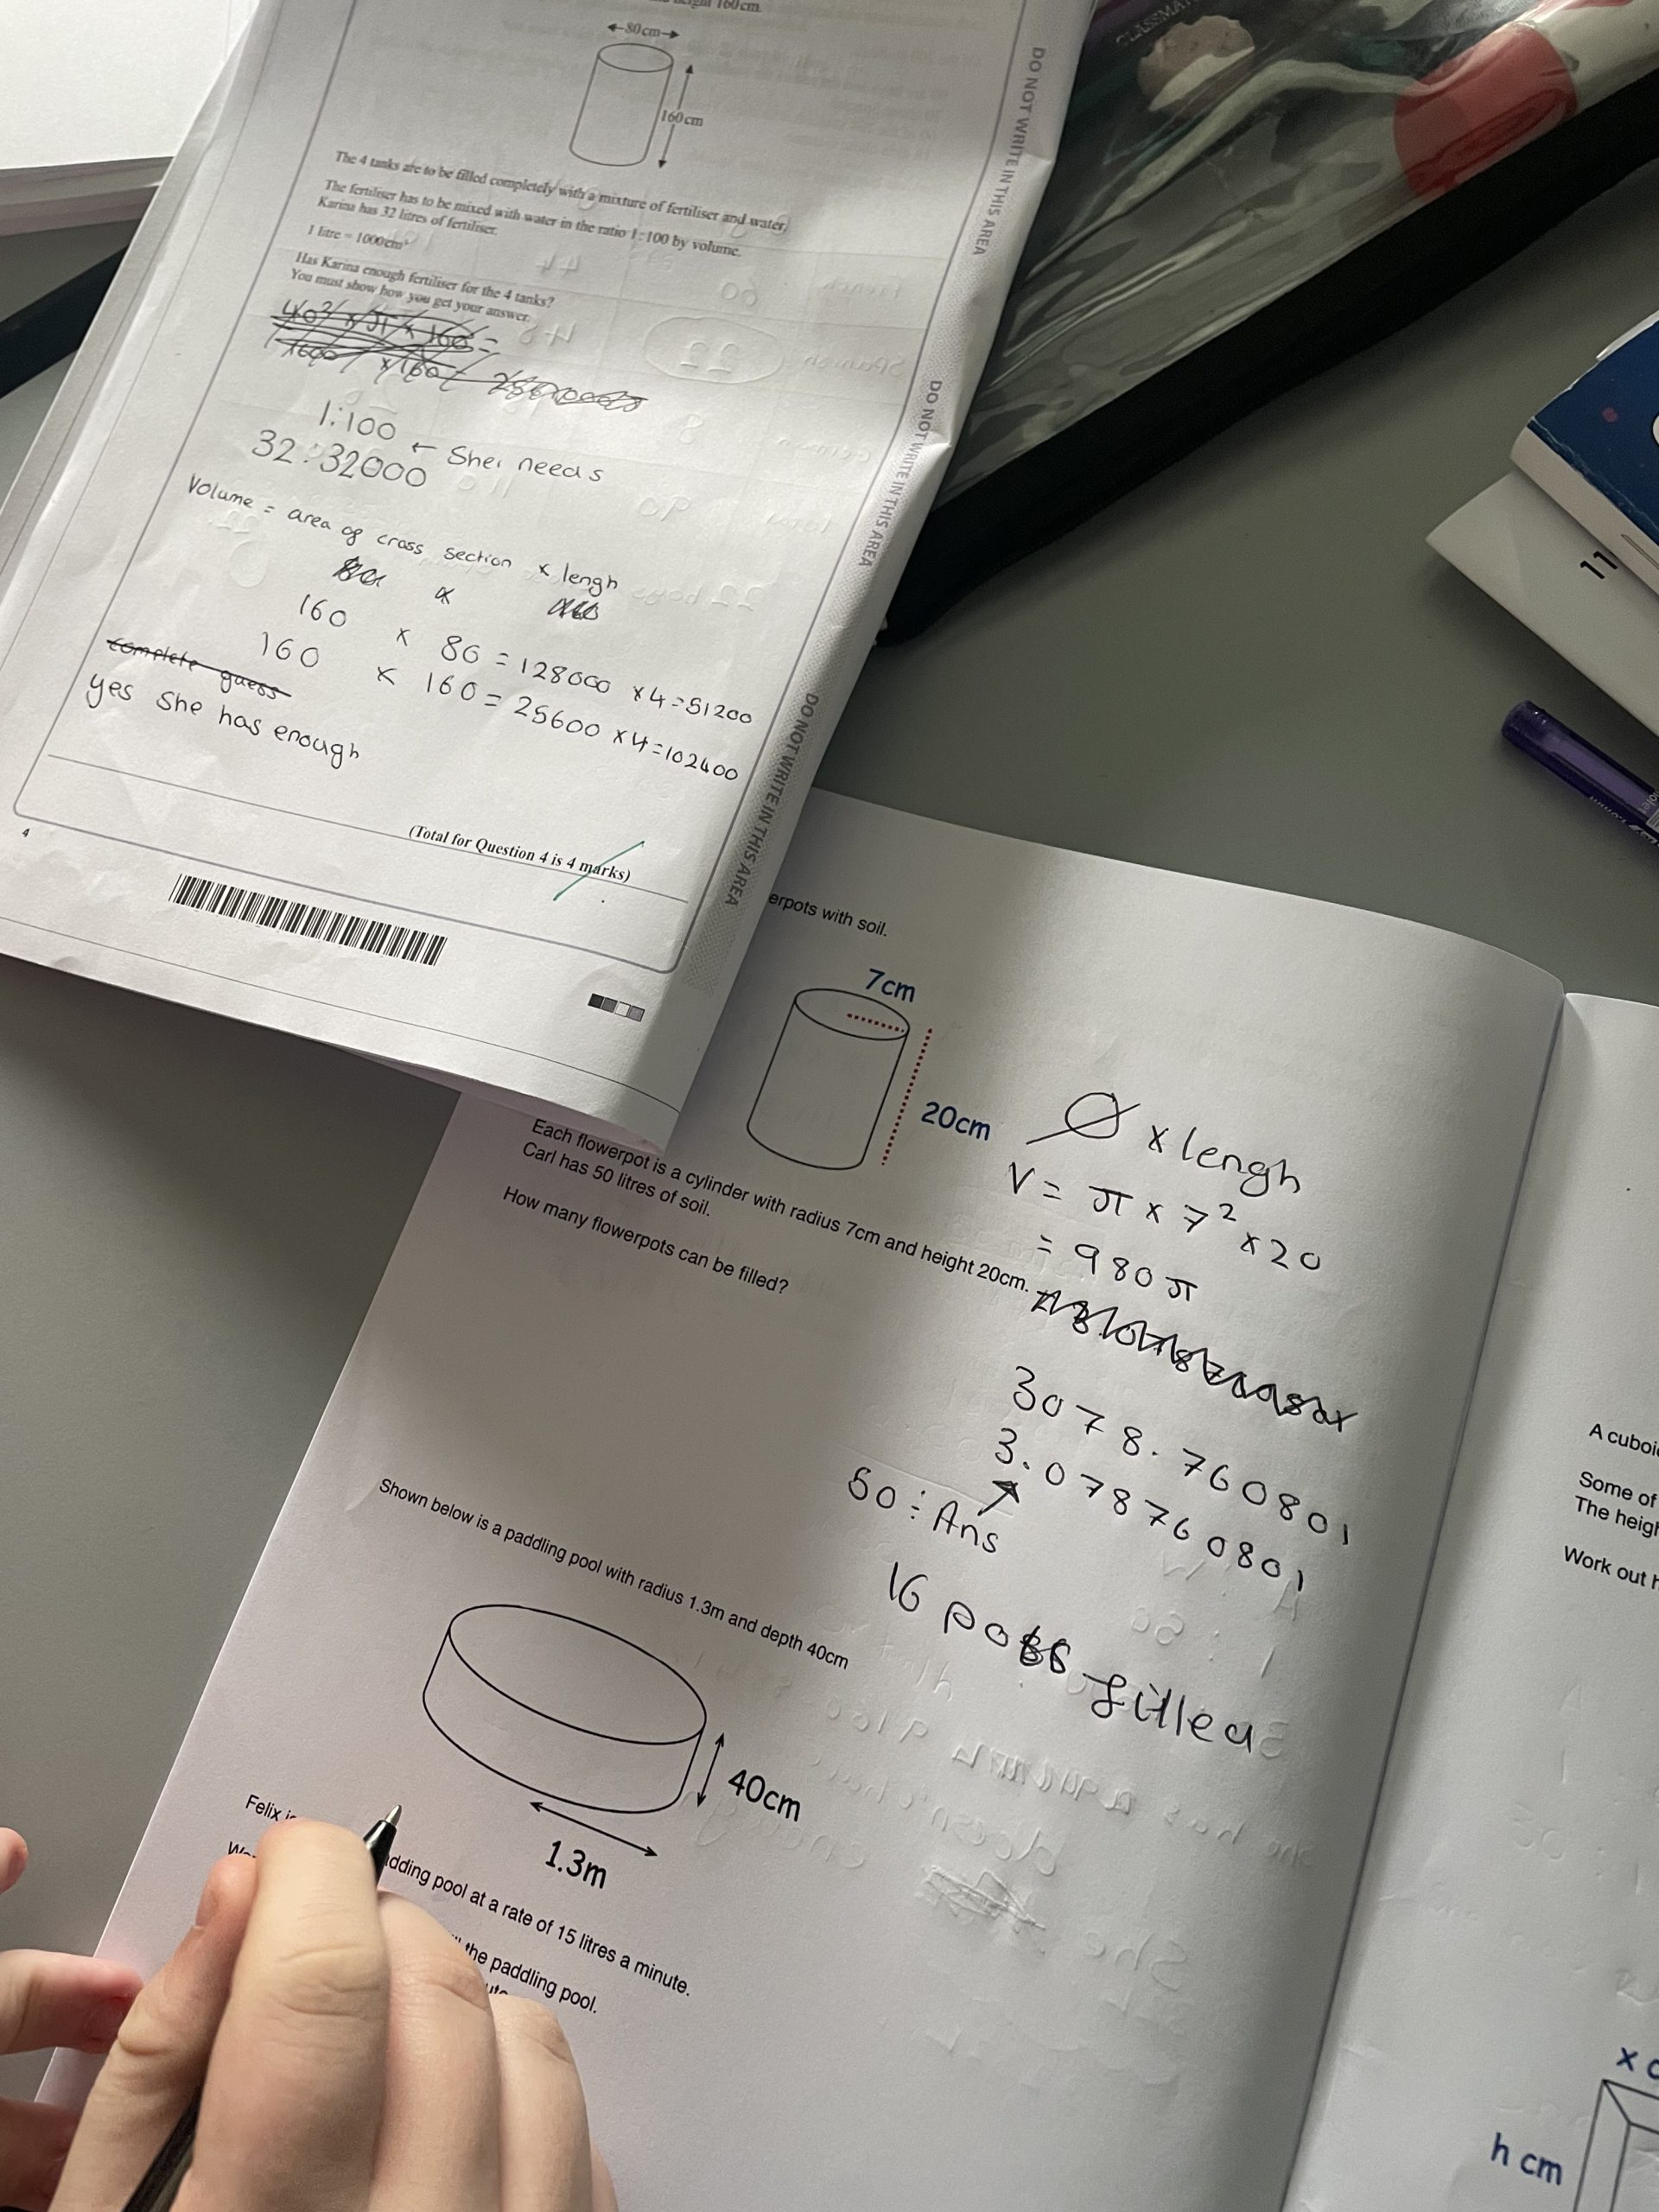 height 160cm.
80cm
160cm
The 4 tanks are to be filled completely with a mixture of fertiliser and water.
The fertiliser has to be mixed with water in the ratio 1:100 by volume.
Karina has 32 litres of fertiliser.
1 litre = 1000cm³
Has Karina enough fertiliser for the 4 tanks?
You must show how you get your answer.
40² × π × 160 =
1600 × 160
1:100
32:32000 ← She needs
Volume = area of cross section × lengh
160 × 80 = 128000 ×4=51200
160 × 160 = 25600 ×4=102400
complete guess
yes she has enough
(Total for Question 4 is 4 marks)
4
DO NOT WRITE IN THIS AREA
DO NOT WRITE IN THIS AREA
DO NOT WRITE IN THIS AREA
11
erpots with soil.
7cm
20cm
Each flowerpot is a cylinder with radius 7cm and height 20cm.
Carl has 50 litres of soil.
How many flowerpots can be filled?
× lengh
V = π × 7² × 20
= 980π
3078.760801
3.078760801
50 ÷ Ans
16 pots filled
Shown below is a paddling pool with radius 1.3m and depth 40cm
40cm
1.3m
Felix
dding pool at a rate of 15 litres a minute.
the paddling pool.
A cuboi
Some of
The heigh
Work out h
x c
h cm